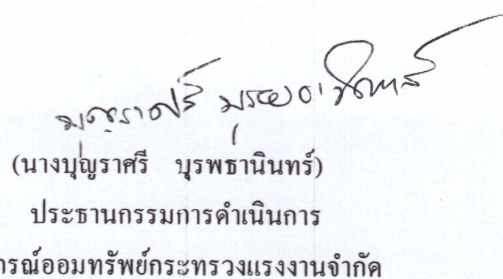 บุญราศรี บุรพธานินทร์
(นางบุญราศรี บุรพธานินทร์)
ประธานกรรมการดำเนินการ
กรณ์ออมทรัพย์กระทรวงแรงงานจำกัด